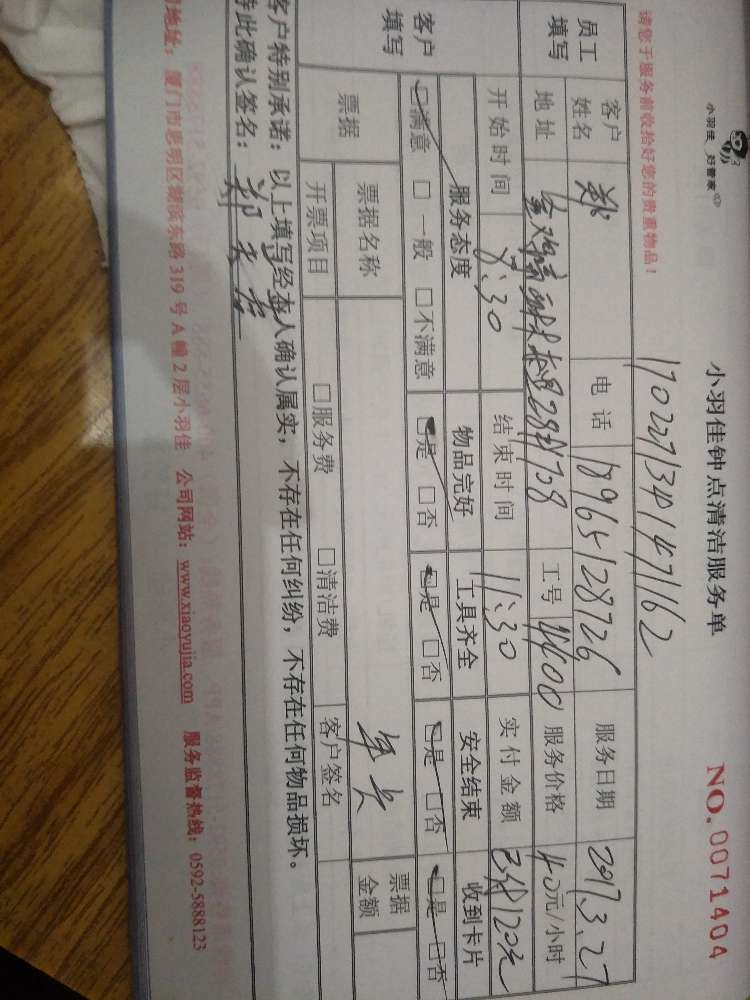 小羽佳 好管家
小羽佳钟点清洁服务单
NO. 0071404
请您于服务前收拾好您的贵重物品!
170227134147162
员工填写
客户姓名 郑 电话 18965128726 服务日期 2017.3.27
地址 工号 4400 服务价格 40元/小时
开始时间 8:30 结束时间 11:30 实付金额 3小时120元
客户填写
服务态度 物品完好 工具齐全 安全结束 收到卡片
☑满意 □一般 □不满意 ☑是 □否 ☑是 □否 ☑是 □否 ☑是 □否
票据 票据名称 票据金额
开票项目 □服务费 □清洁费 客户签名
客户特别承诺:以上填写经本人确认属实,不存在任何纠纷,不存在任何物品损坏。
特此确认签名:郑
司地址:厦门市思明区湖滨东路319号A幢2层小羽佳 公司网站:www.xiaoyujia.com 服务监督热线:0592-5888123